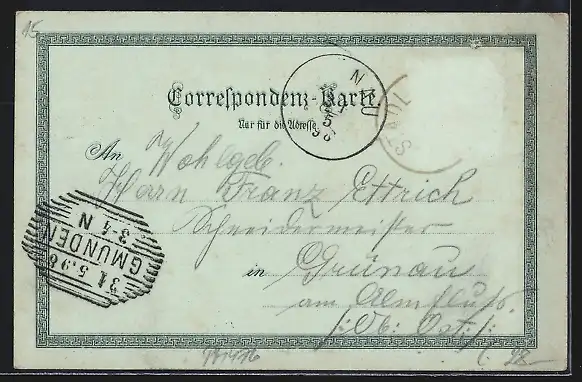 15
Correspondenz-Karte.
Nur für die Adresse.
An Wohlgeb.
Herrn Franz Ettrich
Schneidermeister
in Grünau
am Almfluß.
/:Ob: Öst:/
GMUNDEN
31.5.98
3-4 N